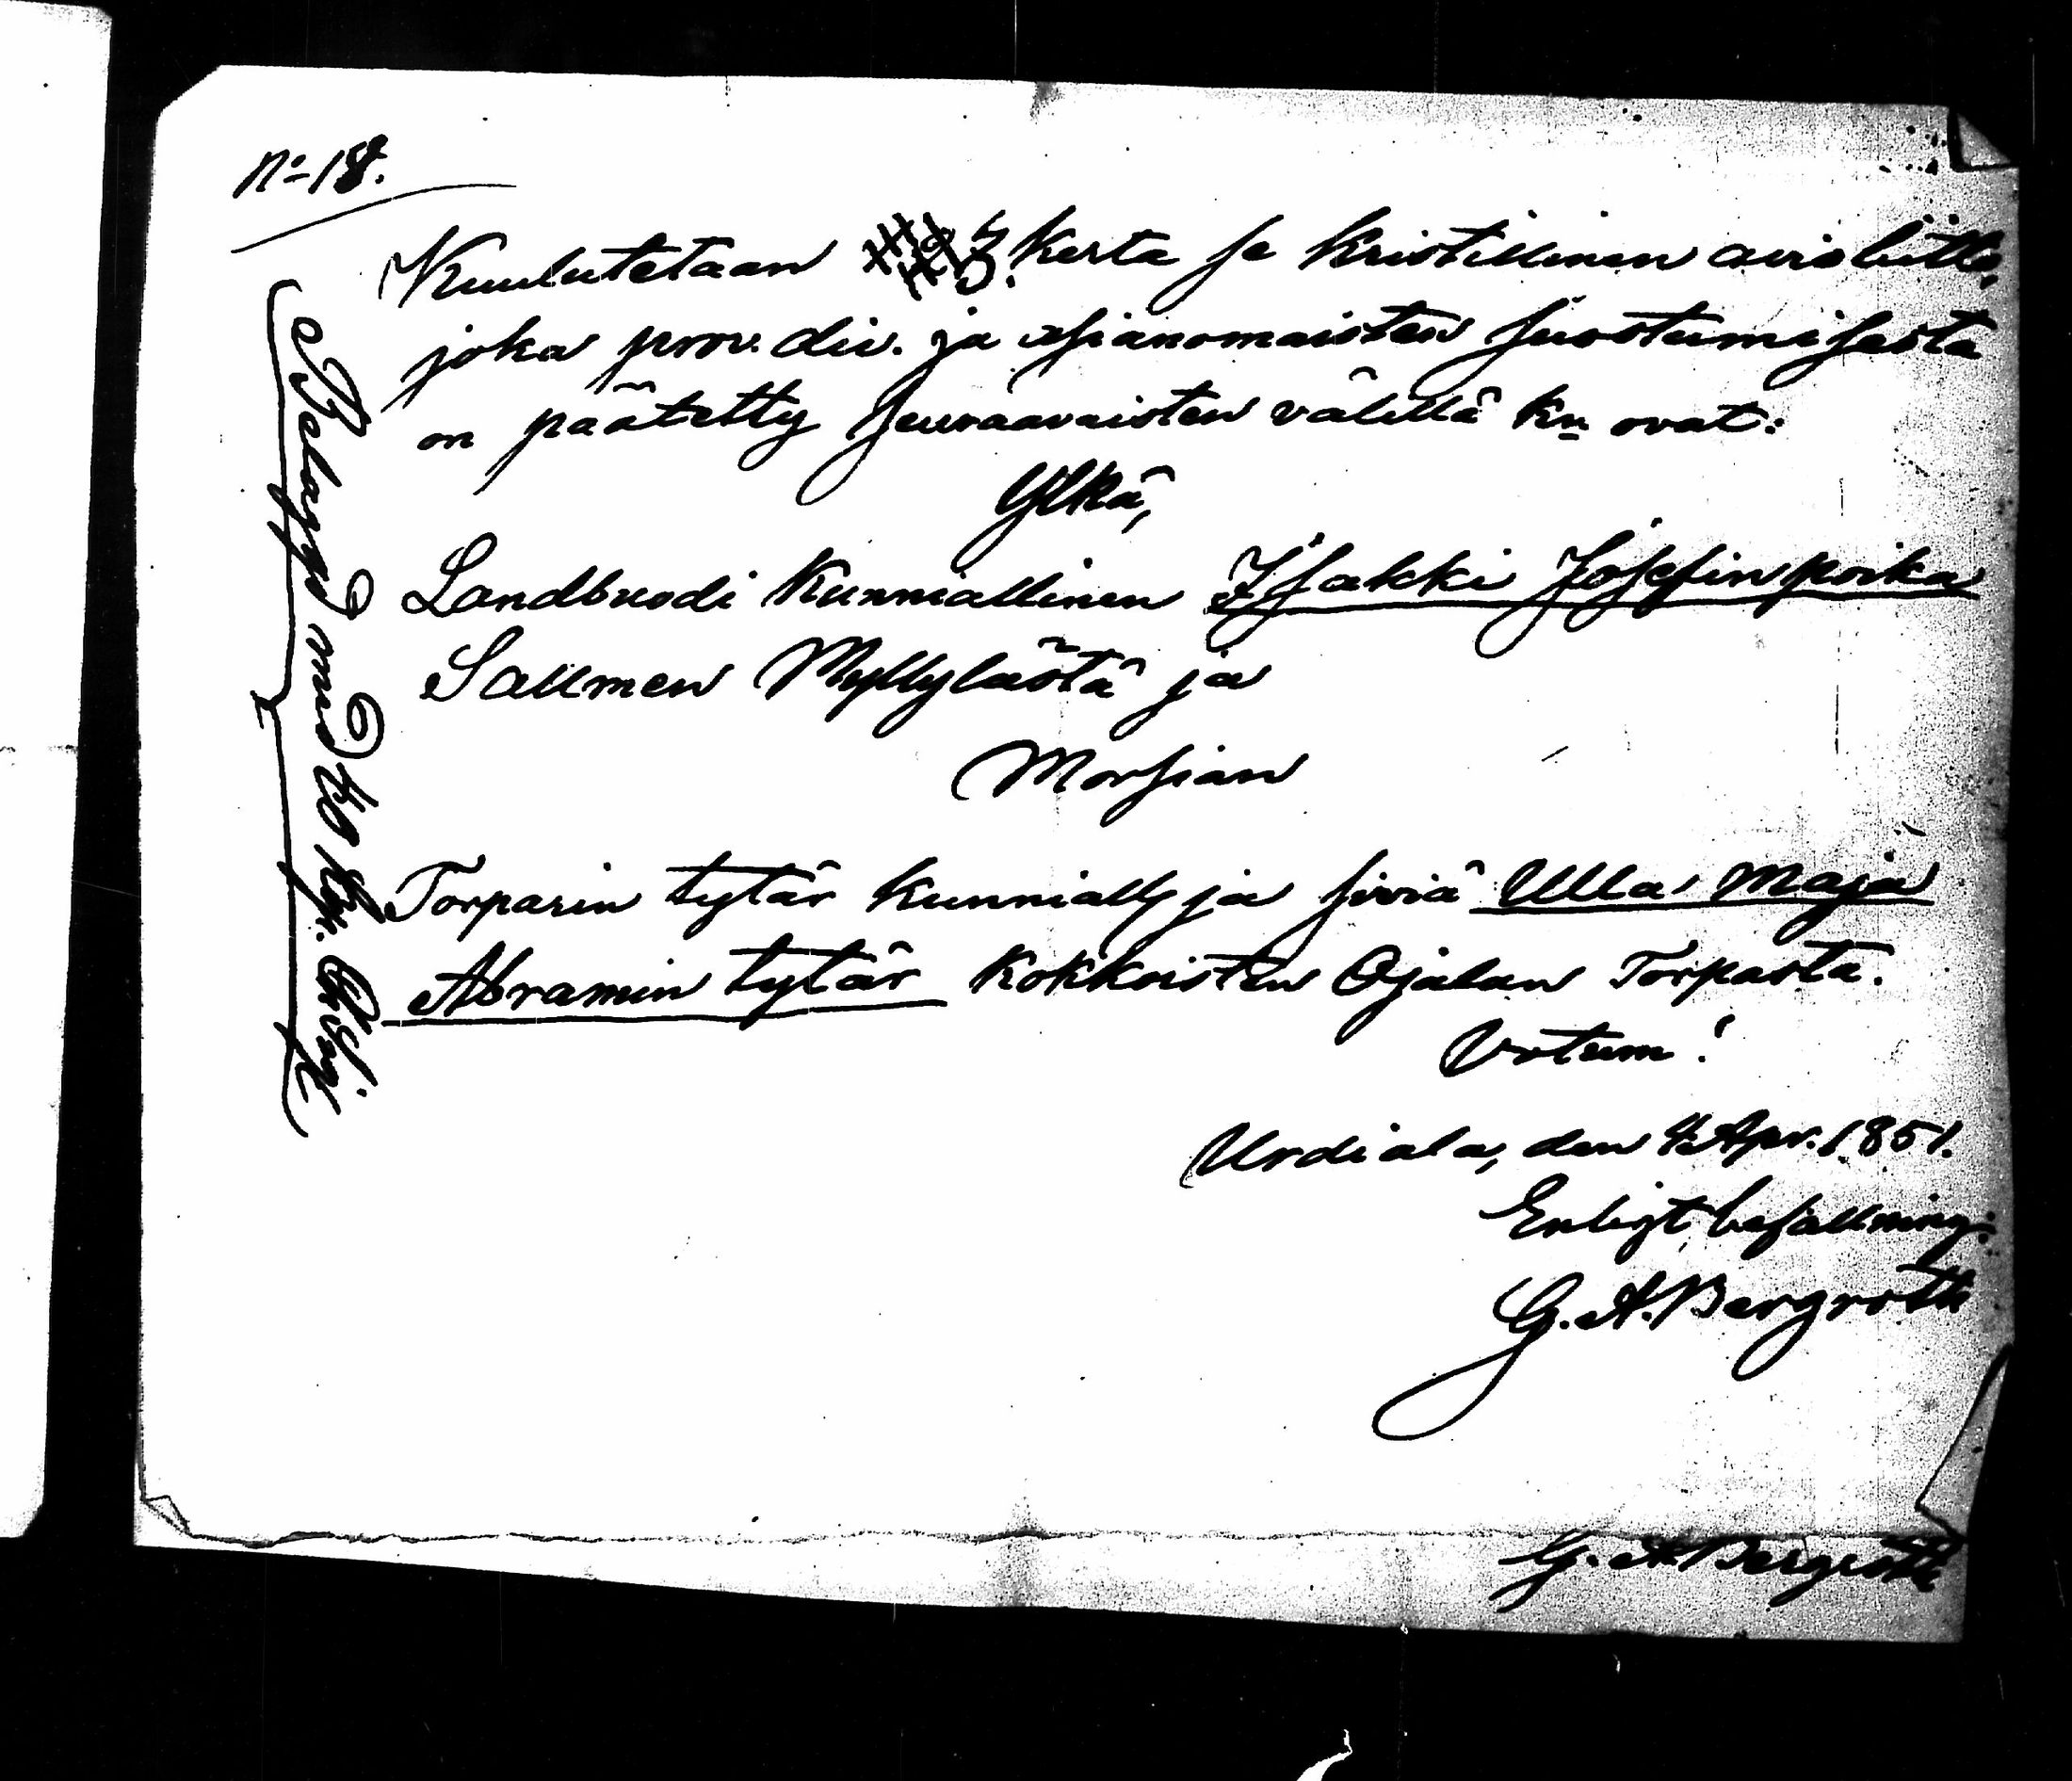 No 18.
Kuulutetaan 3. Kerta se Kristillinen avioliitto,
joka prov. div. ja asianomaisten suostumisesta
on päätetty seuraavaisten välillä kn ovat:
Ylkä,
Landbuodi Kunniallinen Isakki Josefinpoika
Salmen Myllylästä ja
Morsian
Torparin tytär kunniall ja siviä Ulla Maja
Abramin tytär Kokkoisten Ojalan Torpasta.
Votum!
Urdiala, den 4 Apr. 1851.
Enligt befallning:
G. A. Bergroth
G. A. Bergroth
Belagd med 40 kop.